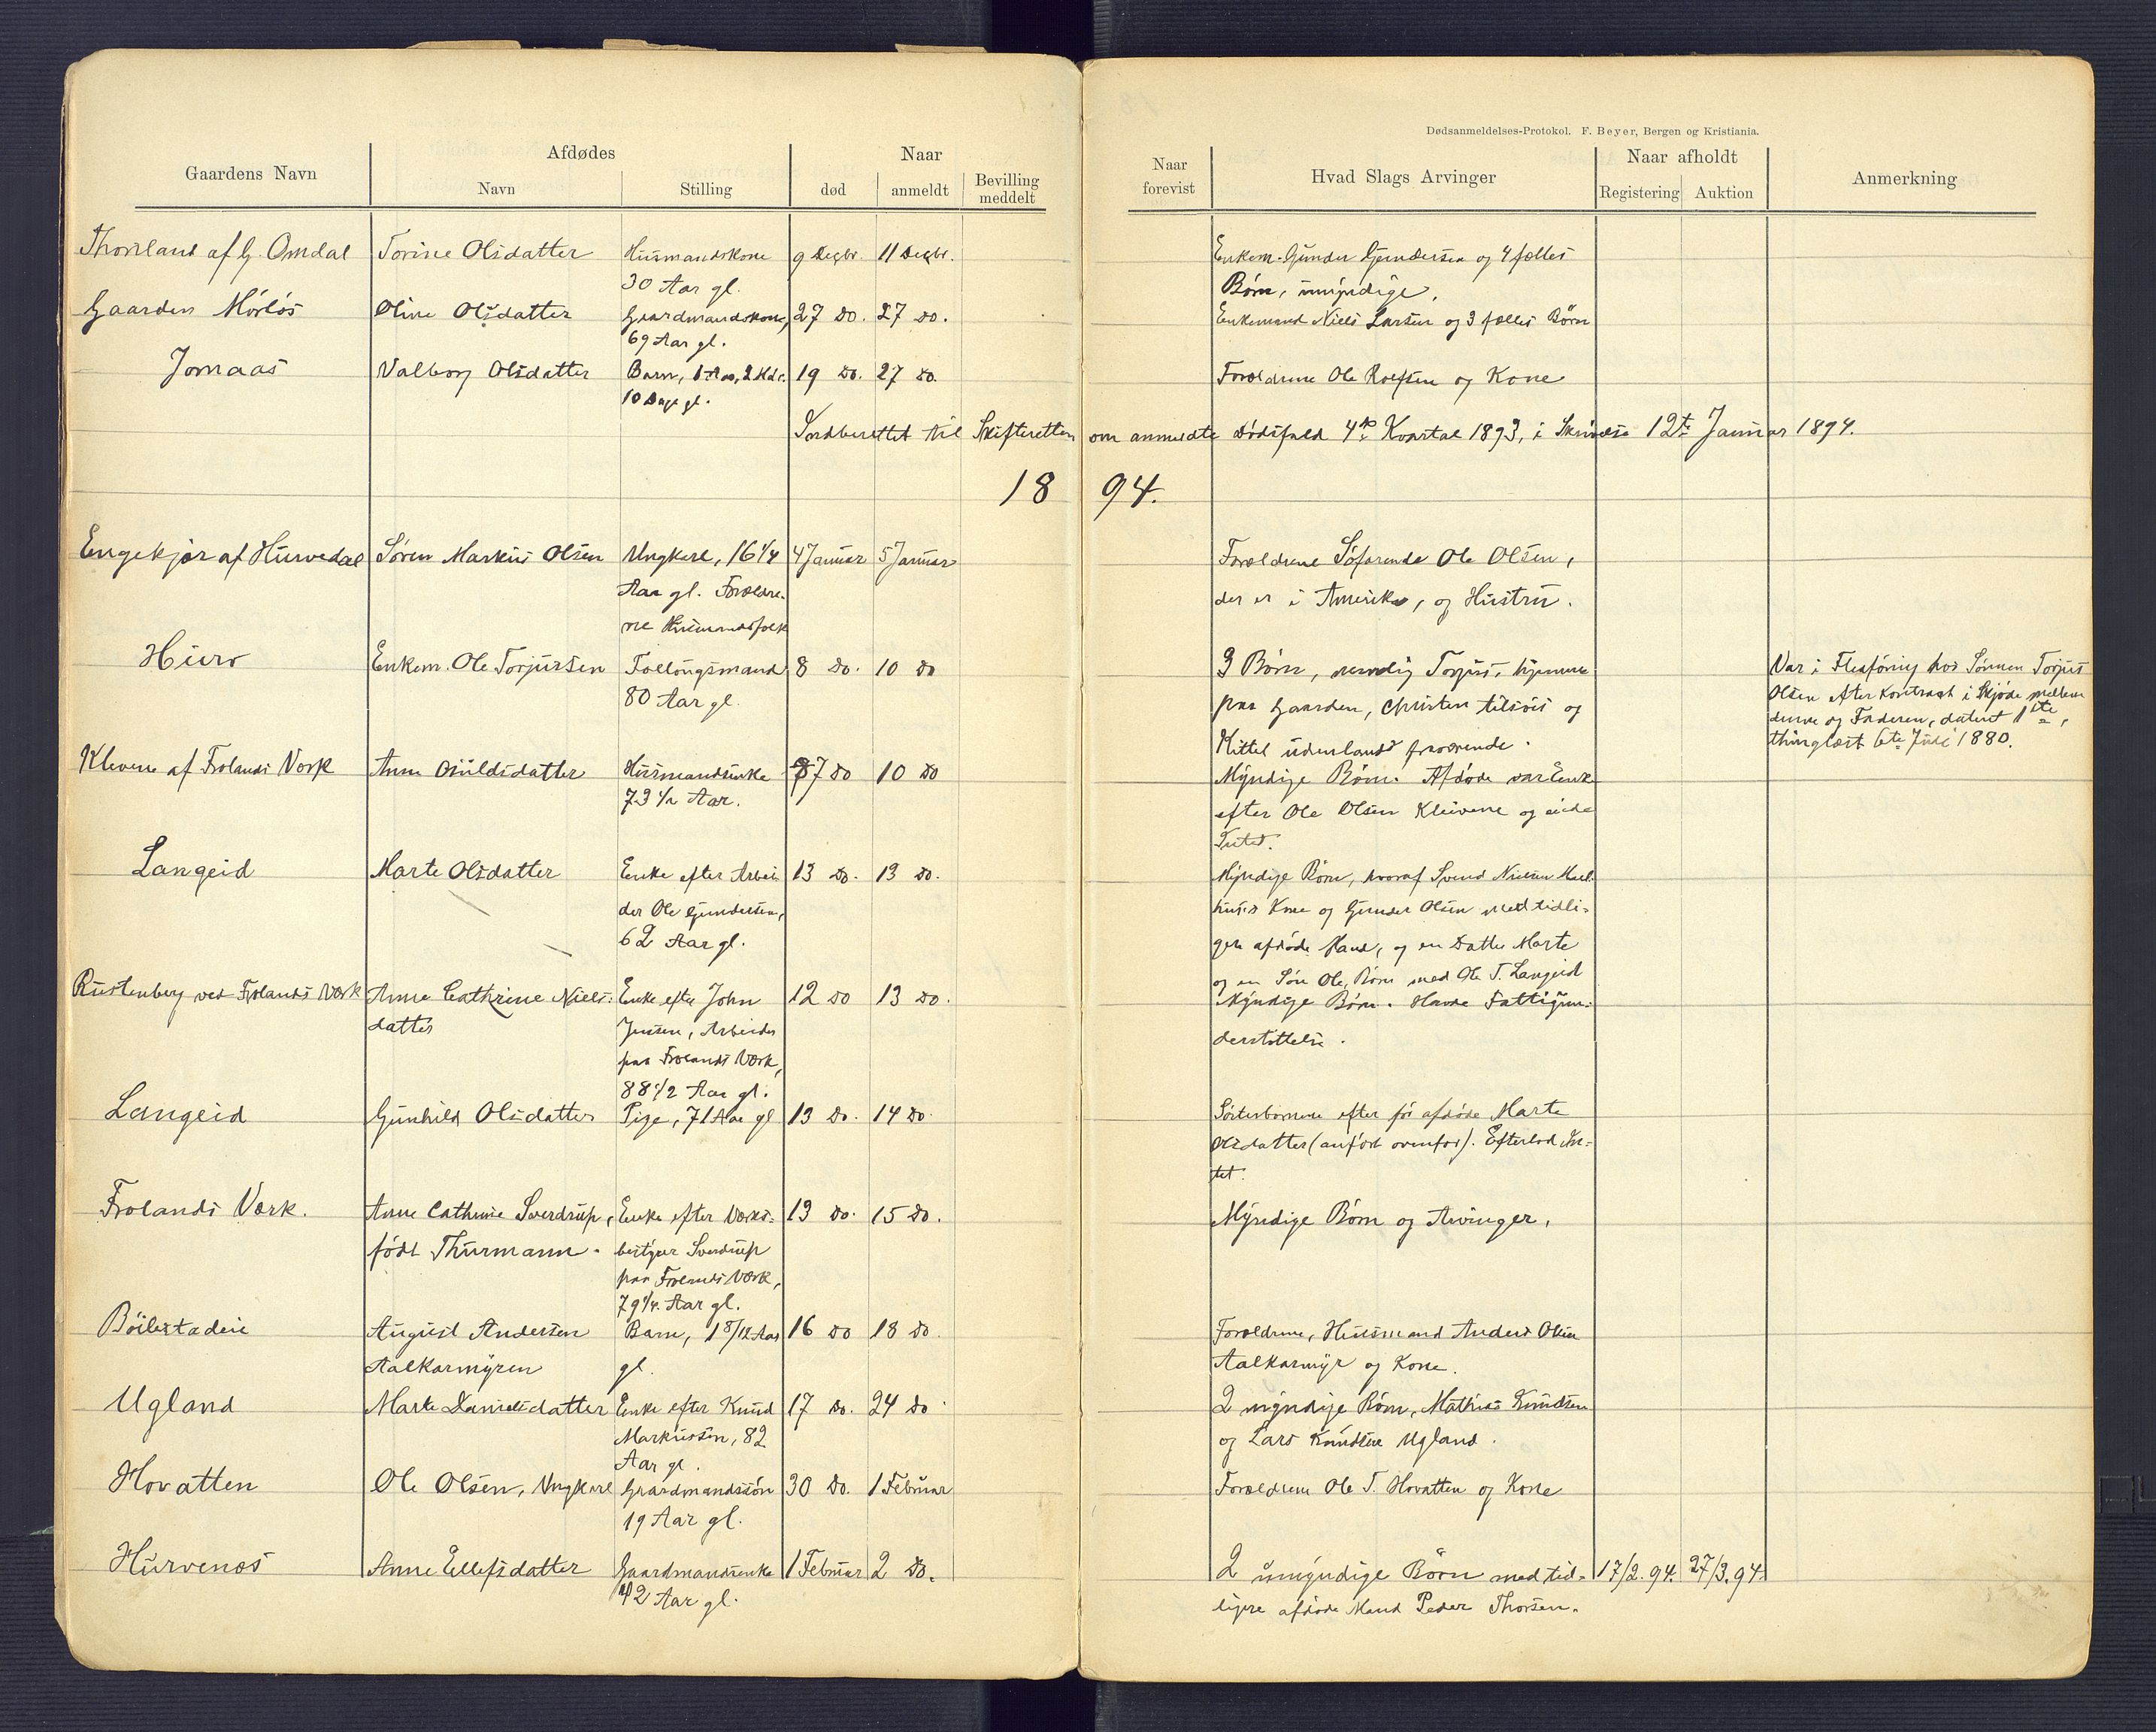 Dødsanmeldelses-Protokol. F. Beyer, Bergen og Kristiania.
Gaardens Navn
Afdødes
Navn
Stilling
Naar
død
anmeldt
Bevilling
meddelt
Naar
forevist
Hvad Slags Arvinger
Naar afholdt
Registering
Auktion
Anmerkning
Thorsland af G. Omdal
Torine Olsdatter
Husmandskone
30 Aar gl.
9 Decbr.
11 Decbr.
Enkem. Gunder Gundersen og 4 fælles
Børn, umyndige.
Gaarden Mørløs
Oline Olsdatter
Gaardmandskone,
69 Aar gl.
27 do.
27 do.
Enkemand Niels Larsen og 3 fælles Børn
Jomaas
Valborg Olsdatter
Barn, 1 Aar, 2 Mdr.
10 Dage gl.
19 do.
27 do.
Forældrene Ole Rolfsen og Kone
Indberettet til Skifteretten om anmeldte Dødsfald 4de Kvartal 1893, i Skrivelse 12te Januar 1894.
1894.
Engekjær af Hurvedal
Søren Markus Olsen
Ungkarl, 16 1/4
Aar gl. Forældre-
ne Husmandsfolk
4 Januar
5 Januar
Forældrene Søfarende Ole Olsen,
der er i Amerika, og Hustru.
Hurv
Enkem. Ole Torjussen
Follougsmand
80 Aar gl.
8 do.
10 do
3 Børn, nemlig Torjus, hjemme
paa Gaarden, Christen tilsøis og
Kittel udenlands fraværende.
Var i Flesføring hos Sønnen Torjus
Olsen efter Kontrakt i Skjøde mellem
denne og Faderen, dateret 1ste,
thinglæst 6te Juli 1880.
Klevene af Frolands Værk
Anne Osuldsdatter
Husmandsenke
73 1/2 Aar.
7 do
10 do
Myndige Børn. Afdøde var Enke
efter Ole Olsen Kleivene og eiede
Intet.
Langeid
Marte Olsdatter
Enke efter Arbei-
der Ole Gundersen,
62 Aar gl.
13 do.
13 do.
Myndige Børn, hvoraf Svend Nielsen
Kone og Gunder Olsen med tidli-
gere afdøde Mand, og en Datter Marte
og en Søn Ole, Børn med Ole T. Langeid
Rustenberg ved Frolands Værk
Anne Cathrine Niels-
datter
Enke efter John
Jensen, Arbeider
paa Frolands Værk,
88 1/2 Aar gl.
12 do
13 do.
Myndige Børn. Havde Fattigun-
derstøttelse.
Langeid
Gunhild Olsdatter
Pige, 71 Aar gl
13 do.
14 do.
Søsterbørnene efter før afdøde Marte
Olsdatter (anført ovenfor). Efterlod In-
tet.
Frolands Værk.
Anne Cathrine Sverdrup,
født Thurmann.
Enke efter Værks-
bestyrer Sverdrup
paa Frolands Værk,
79 1/4 Aar gl.
13 do.
15 do.
Myndige Børn og Arvinger.
Böilestadeie
August Andersen
Aalkarmyren
Barn, 1 8/12 Aar
gl.
16 do
18 do.
Forældrene, Husmand Anders Olsen
Aalkarmyr og Kone.
Ugland
Marte Danielsdatter
Enke efter Knud
Markussen, 82
Aar gl.
17 do.
24 do.
2 myndige Børn, Mathias Knudsen
og Lars Knudsen Ugland.
Hovatten
Ole Olsen, Ungkarl
Gaardmandssøn
19 Aar gl.
30 do.
1 Februar
Forældrene Ole T. Hovatten og Kone
Hurvenes
Anne Ellefsdatter
Gaardmandsenke
42 Aar gl.
1 Februar
2 do.
2 umyndige Børn med tid-
ligere afdøde Mand Peder Thorsen.
17/2.94.
27/3.94.